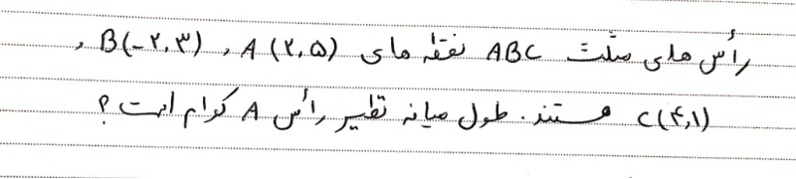 رأس های مثلث ABC نقطه های A(۲,۵) , B(-۲,۳) ,
C(۴,۱) هستند. طول میانه نظیر رأس A کدام است؟